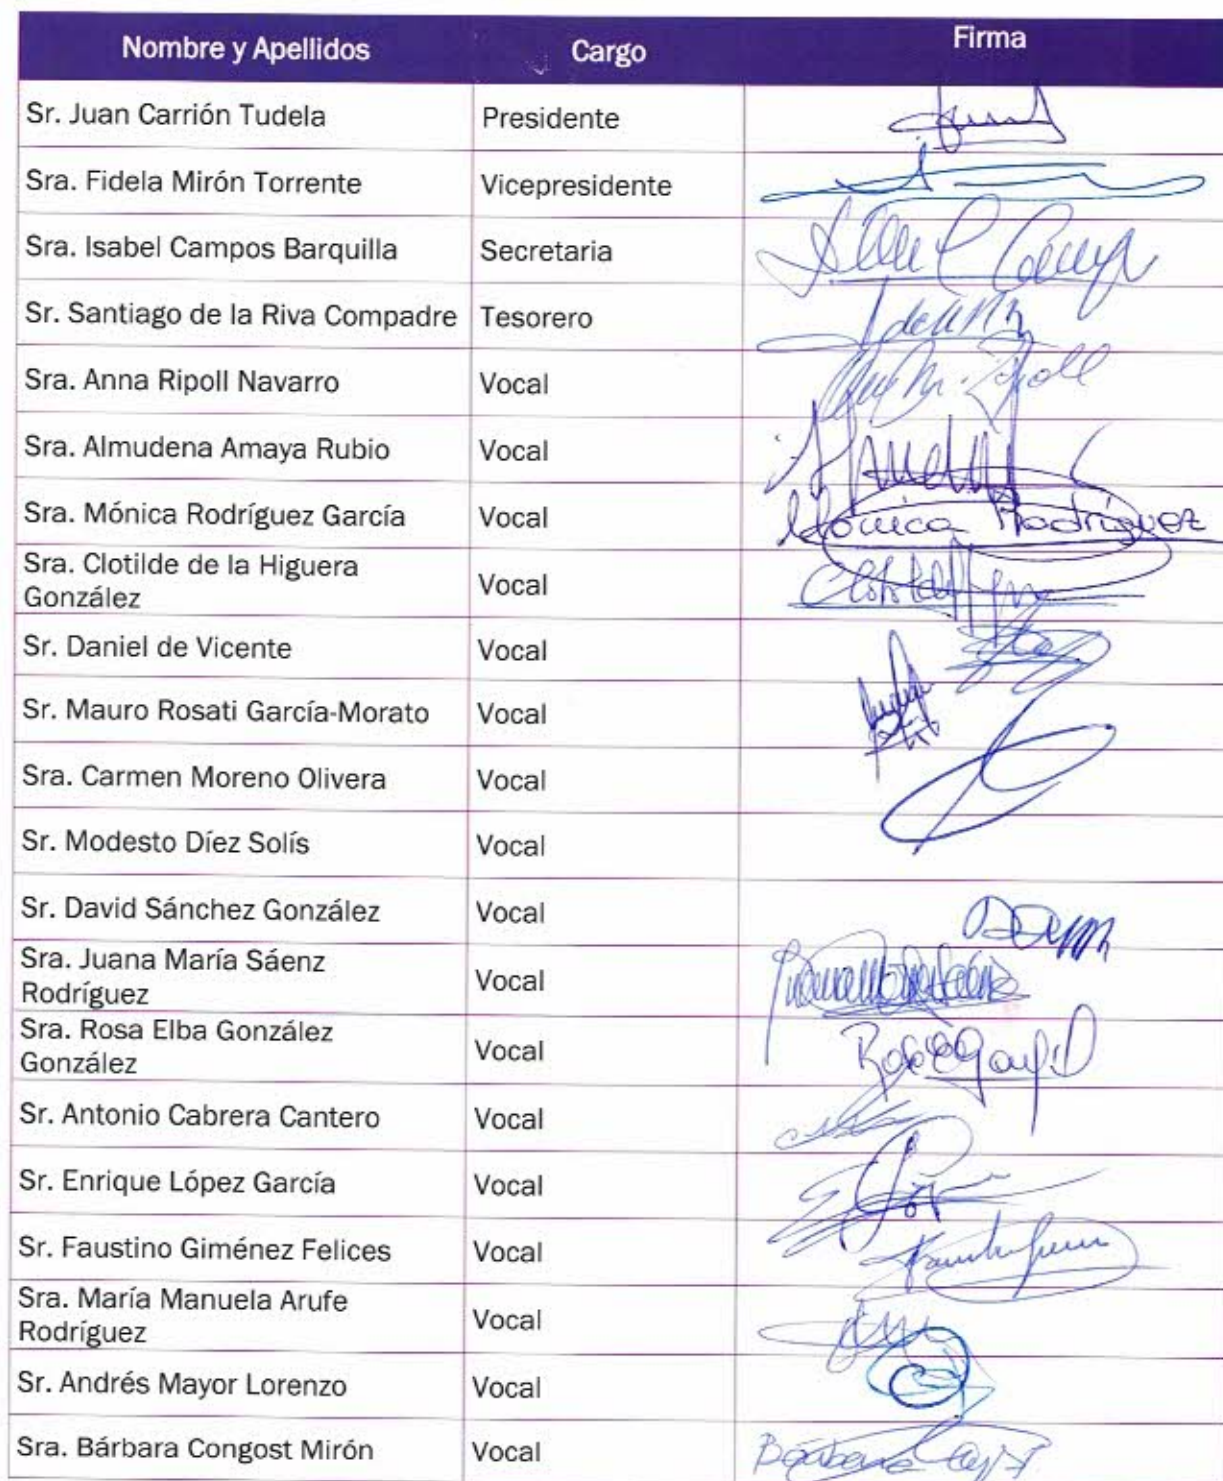 Nombre y Apellidos Cargo Firma
Sr. Juan Carrión Tudela Presidente
Sra. Fidela Mirón Torrente Vicepresidente
Sra. Isabel Campos Barquilla Secretaria
Sr. Santiago de la Riva Compadre Tesorero
Sra. Anna Ripoll Navarro Vocal
Sra. Almudena Amaya Rubio Vocal
Sra. Mónica Rodríguez García Vocal Mónica Rodríguez
Sra. Clotilde de la Higuera
González Vocal
Sr. Daniel de Vicente Vocal
Sr. Mauro Rosati García-Morato Vocal
Sra. Carmen Moreno Olivera Vocal
Sr. Modesto Díez Solís Vocal
Sr. David Sánchez González Vocal
Sra. Juana María Sáenz
Rodríguez Vocal
Sra. Rosa Elba González
González Vocal
Sr. Antonio Cabrera Cantero Vocal
Sr. Enrique López García Vocal
Sr. Faustino Giménez Felices Vocal
Sra. María Manuela Arufe
Rodríguez Vocal
Sr. Andrés Mayor Lorenzo Vocal
Sra. Bárbara Congost Mirón Vocal